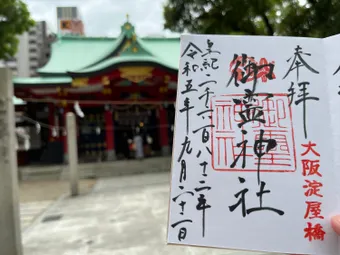 奉拝
大阪淀屋橋
御霊神社
皇紀二千六百八十三年
令和五年九月二十一日